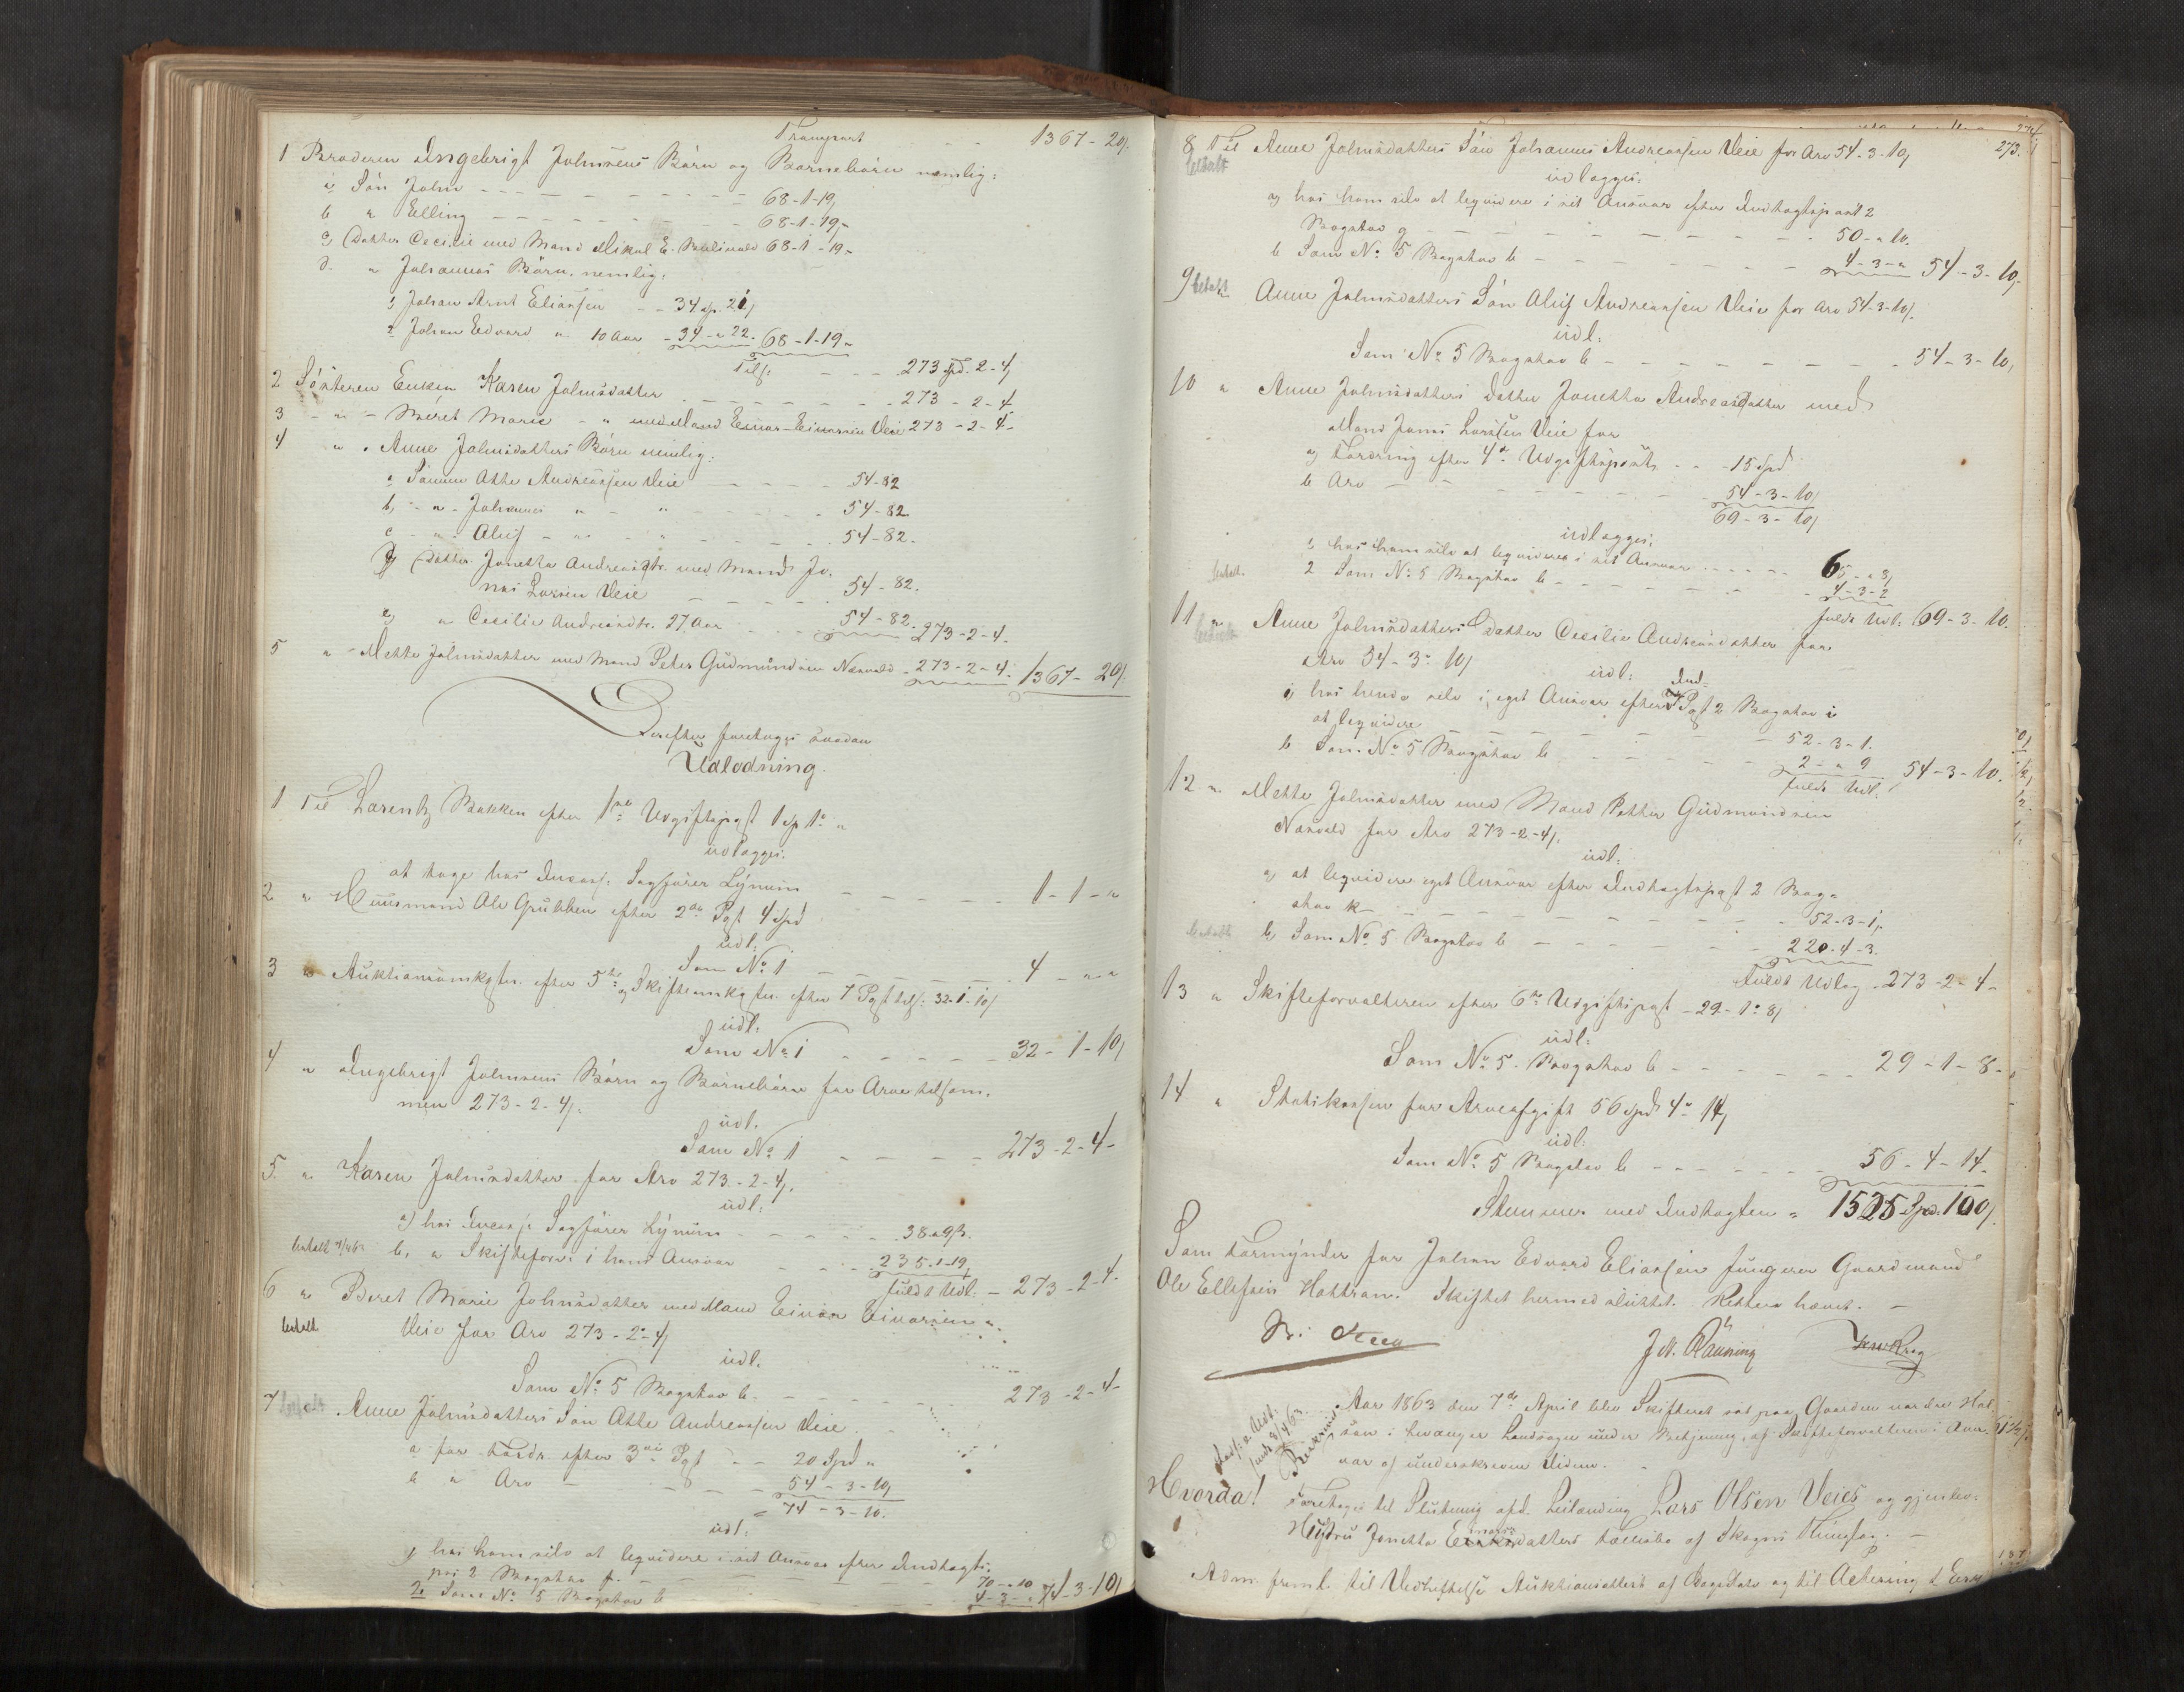 Transport - - 1367 - 20/.
1 Broderen Ingebrigt Johnsens Børn og Børnebørn nemlig:
a, Søn John - - - - - - - - - 68-1-19,
b " Elling - - - - - - - 68-1-19,-
c, Datter Cecilie med Mand Mikal E. 68-1-19-
d. " Johannas Børn, nemlig:
1, Johan Arnt Eliassen - - 34 sp. 21,
2 Johan Edvard " 10 Aar - 34 - " 22. 68-1-19-
Tils. - - - 273 Spd. 2-4,
2 Søsteren Enken Karen Johnsdatter - - - - - - 273 - 2 - 4
3 - " - Beret Marie - " med Mand Einar Einarsen Veie 273 - 2 - 4 -
4 " " Anne Johnsdatters Børn nemlig:
a, Sønnen Atte Andreassen Veie - - - - 54-82
b, - " - Johannes " - " - - - - 54-82.
c - " - Aluf - " - " - - - - 54-82.
d, Datter Jonetta Andreasdtr. med Mand Jo-
nas Larsen Veie - - - - 54-82.
e, " Cecilie Andreasdtr. 27 Aar - - - 54-82. 273-2-4.
5 " - Mette Johnsdatter med Mand Peter Gudmundsen Næsvold - 273-2-4. 1367 - 20/.
Derefter foretoges saadan
Udlodning.
1 Til Lorentz Bakken efter 1ste Udgiftspost 1 sp 1 "
udlægges:
at tage hos Incass: Sagfører Lynum - - - - - 1-1-"
2 " Huusmand Ole Grubben efter 2den Pgst 4 Spd
udl:
Som No 1 - - - - - 4 - " "
3 " Auktionsomkgstn. efter 5te og Skifteomkgstn. efter 7 Pgst tils: 32-1-10/
udl:
Som No 1 - - - - - 32-1-10/
4 " Ingebrigt Johnsens Børn og Børnebørn for Arv tilsam-
men 273-2-4/.
udl.
Som No 1 - - - - 273-2-4-
5. " Karen Johnsdatter for Arv 273-2-4/.
udl:
a) hos Incass: Sagfører Lynum - - - - - 38 " 9 s.
b, " Skifteforv: i hans Ansvar - - - 235-1-19,
fuldt Udl: - 273-2-4.
6 " Beret Marie Johnsdatter med Mand Einar Einarsen
betalt Veie for Arv 273-2-4/
udl.
Som No 5 Bogstav b. - - - - - 273-2-4-
7 betalt Anne Johnsdatters Søn Atte Andreassen Veie
a for Fordr. efter 3die Pgst - - 20 Spd "
b " Arv - - - - 54-3-10,
74-3-10.
udl:
1 hos ham selv at leqvidere i sit Ansvar efter Indtægts-
post 2 Bogstav f. - - - - - 70-"10
2 Som No 5 Bogstav b - - - - 4-3-" 74-3-10/
273.
8 Til Anne Johnsdatters Søn Johannes Andreassen Veie for Arv 54-3-10,
betalt
udlægges:
a, hos ham selv at leqvidere i sit Ansvar efter Indtægtspost 2
Bogstav g - - - - - - - - 50-"10.
b Som No 5 Bogstav b - - - - - 4-3-" 54-3-10,
9 betalt Anne Johnsdatters Søn Aluf Andreassen Veie for Arv 54-3-10/.
udl:
Som No 5 Bogstav b - - - - - - 54-3-10,
10 " Anne Johnsdatters Datter Jonetta Andreasdatter med
Mand Jonas Larssen Veie for
a, Fordring efter 4de Udgiftspost - - 15 Spd
b Arv - - - - - - 54-3-10,
69-3-10,
udlægges:
1, hos ham selv at leqvidere i sit Ansvar - - - - 65-"8,
betalt. 2 Som No 5 Bogstav b - - - - - 4-3-2
fuldt Udl. 69-3-10.
11 " Anne Johnsdatters Datter Cecilie Andreasdatter for
betalt Arv 54-3-10/
udl: Ind-
1, hos hende selv i eget Ansvar efter Pgst 2 Bogstav i
at leqvidere - - - - - - - 52-3-1.
b Som No 5 Bogstav b - - - - - 2-"9 54-3-10.
fuldt Udl.
12 " Mette Johnsdatter med Mand Petter Gudmundsen
Næsvold for Arv 273-2-4/.
udl:
a, at leqvidere i eget Ansvar efter Indtægtspgst 2 Bog-
stav k - - - - - - - - 52-3-1,
betalt b, Som No 5 Bogstav b - - - - - 220-4-3.
fuldt Udlæg 273-2-4-
13 " Skifteforvalteren efter 6te Udgiftspgst - 29-1-8/
udl:
Som No 5 Bogstav b - - - - - 29-1-8-
14 " Statskassen for Arveafgift 56 Spd 4-14,
udl:
Som No 5 Bogstav b - - - - - - 56-4-14-
Stemmer med Indtægten = 1525 Spd. 100/.
Som Formynder for Johan Edvard Eliassen fungerer Gaardmand
Ole Ellefsen Hottran. Skiftet hermed sluttet. Retten hævet. -
Aar 1863 den 7de April blev Skifteret sat paa Gaarden nordre Hal-
saan i Levanger Landsogn under Betjening af Skifteforvalteren i Over-
vær af underskrevne Vidner. -
Hvorda! Foretoges til Slutning afd. Leilænding Lars Olsen Veies og gjenlev.
Hustru Jonetta Einarsdatters Fællesbo af Skogns Thinglag. -
Adm. freml. til Vedheftelse Auktionsattest af Dags Dato og til Actering 1 Ex